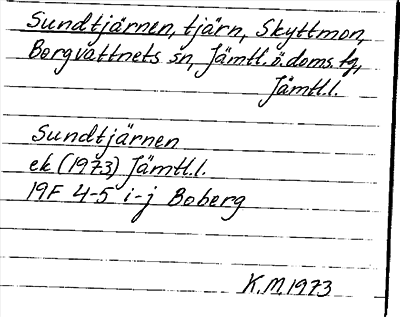 Sundtjärnen, tjärn, Skyttmon,
Borgvattnets sn, Jämtl. ö. doms. tg,
Jämtl.l.
Sundtjärnen
ek (1973) Jämtl.l.
19F 4-5 i-j Boberg
K.M.1973